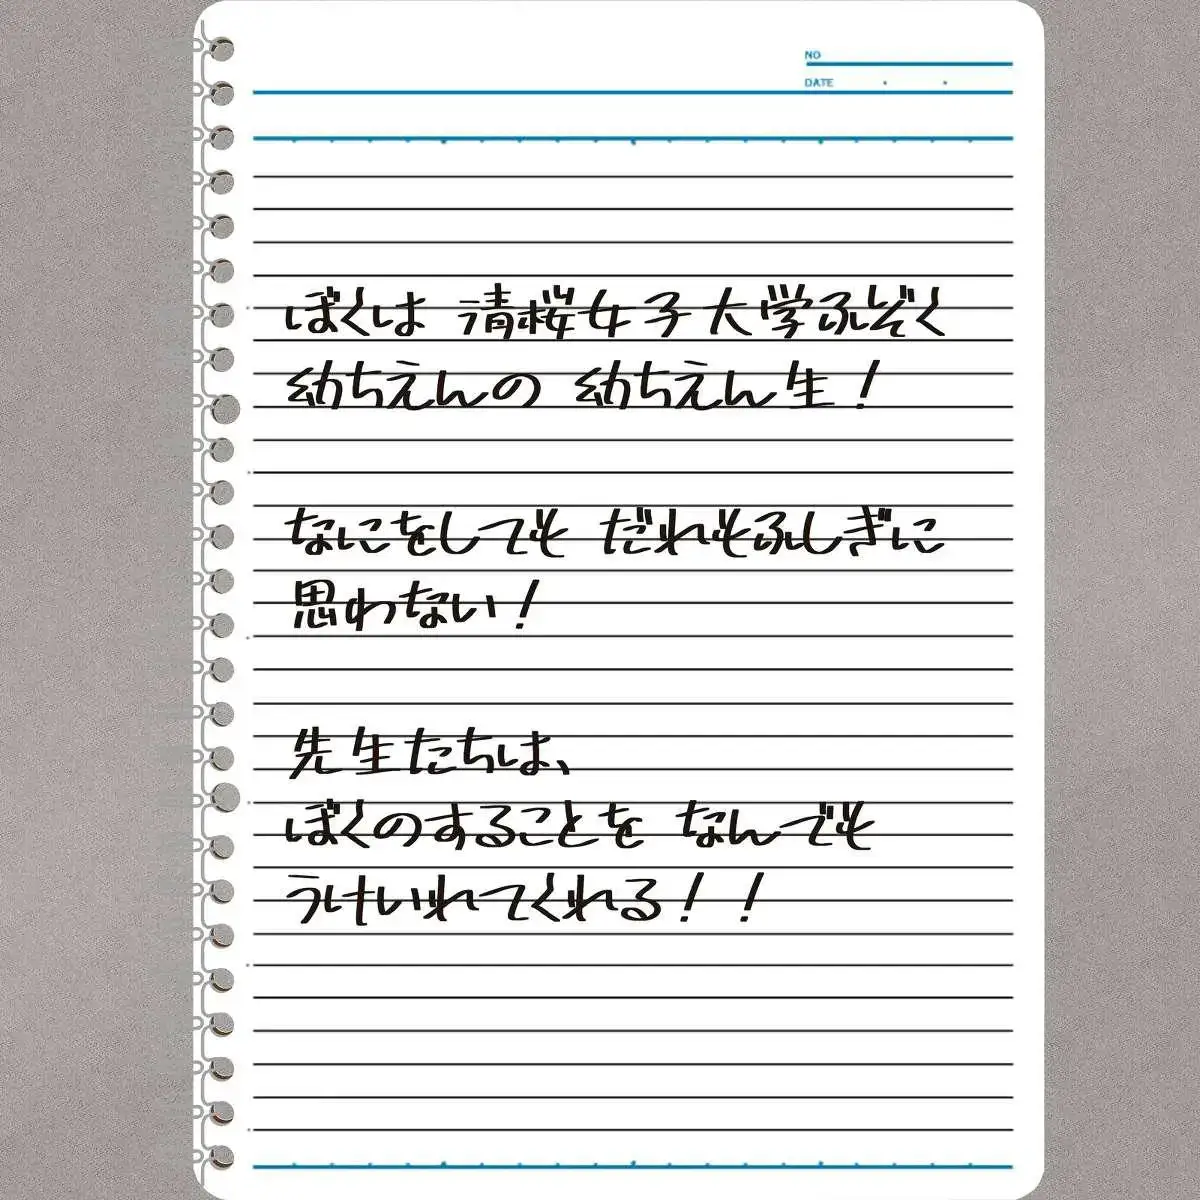 NO
DATE
ぼくは 清桜女子大学ふぞく
幼ちえんの 幼ちえん生！
なにをしても だれもふしぎに
思わない！
先生たちは、
ぼくのすることを なんでも
うけいれてくれる！！